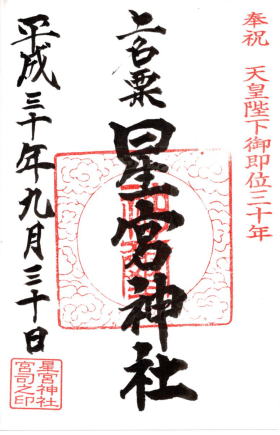 奉祝 天皇陛下御即位三十年
上名栗
星宮神社
平成三十年九月三十日
星宮神社
宮司之印